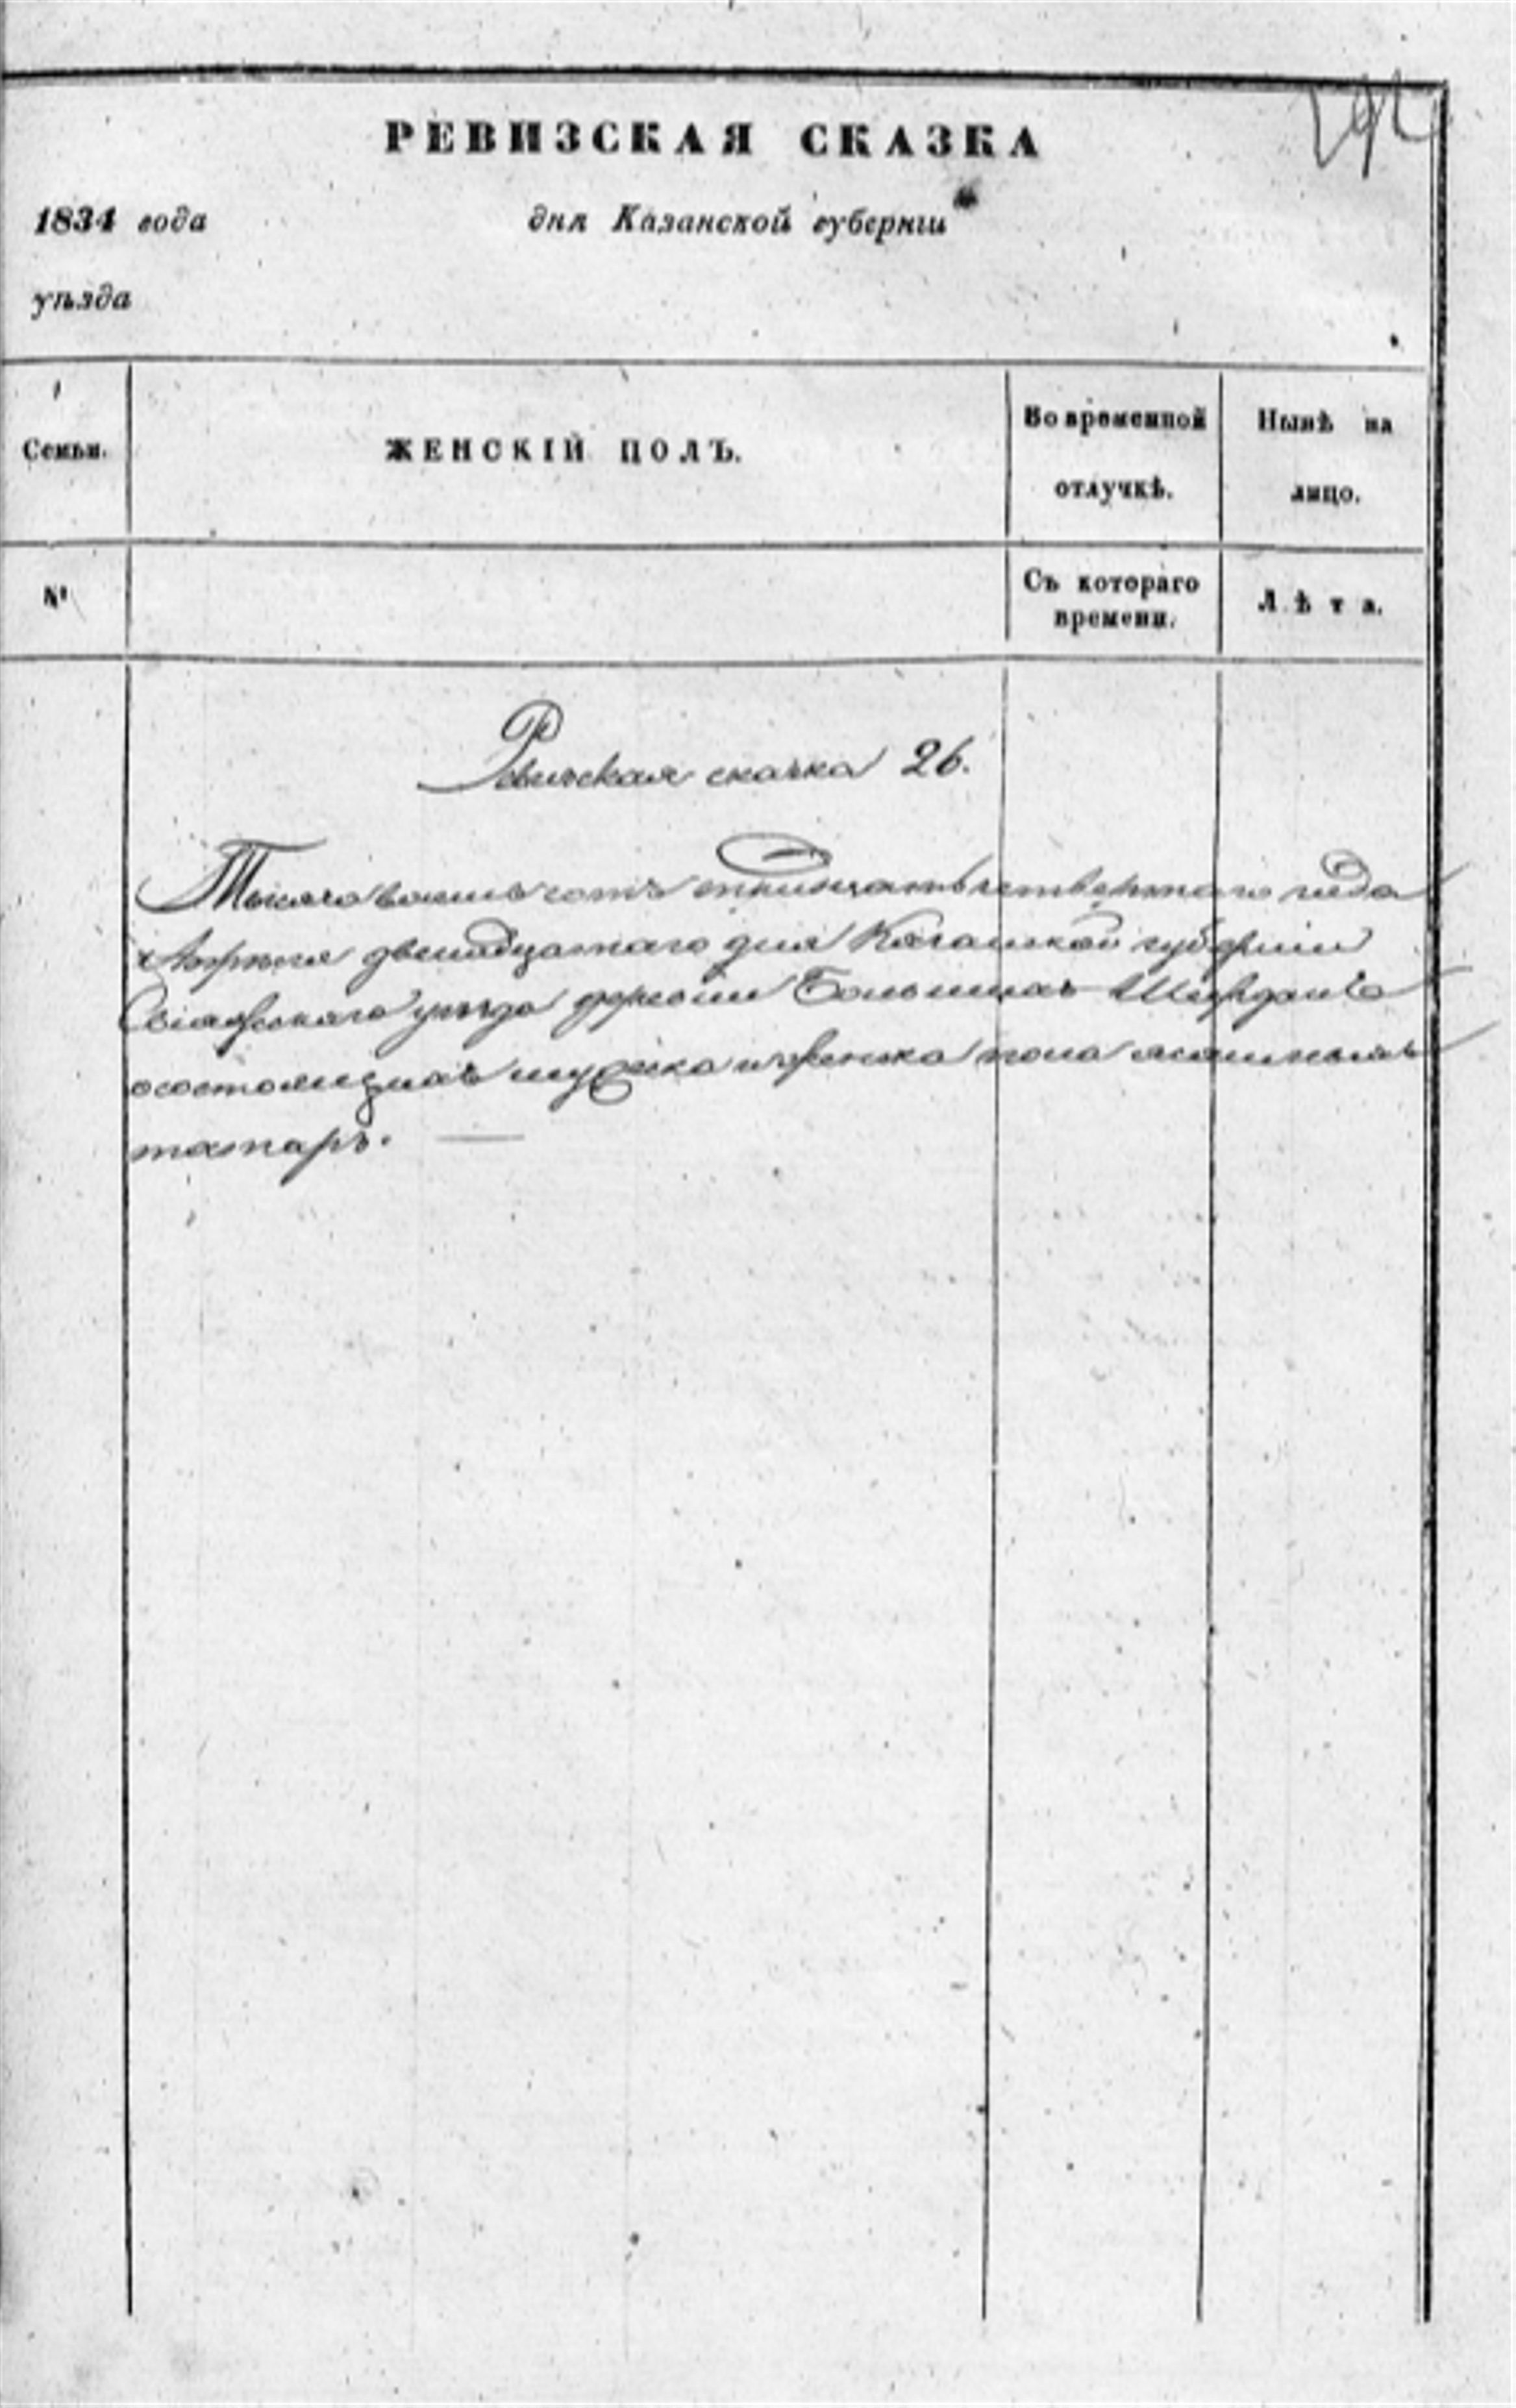 РЕВИЗСКАЯ СКАЗКА
1834 года дня Казанской губерніи
уѣзда
Семьи. ЖЕНСКІЙ ПОЛЪ. Во временной отлучкѣ. Нынѣ на лицо.
№ Съ котораго времени. Лѣта.
Ревизская сказка 26.
Тысяча восемь сотъ тридцать четвертаго года
Апреля двенадцатаго дня Казанской губерніи
Свіяжскаго уезда деревни Большихъ Ширданъ
о состоящихъ мужска и женска пола
татаръ.